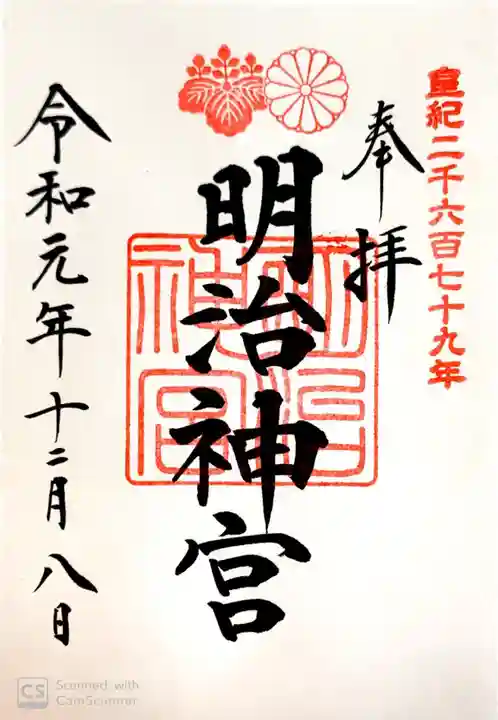 皇紀二千六百七十九年
奉拝
明治神宮
明治神宮
令和元年十二月八日
CS
Scanned with
CamScanner